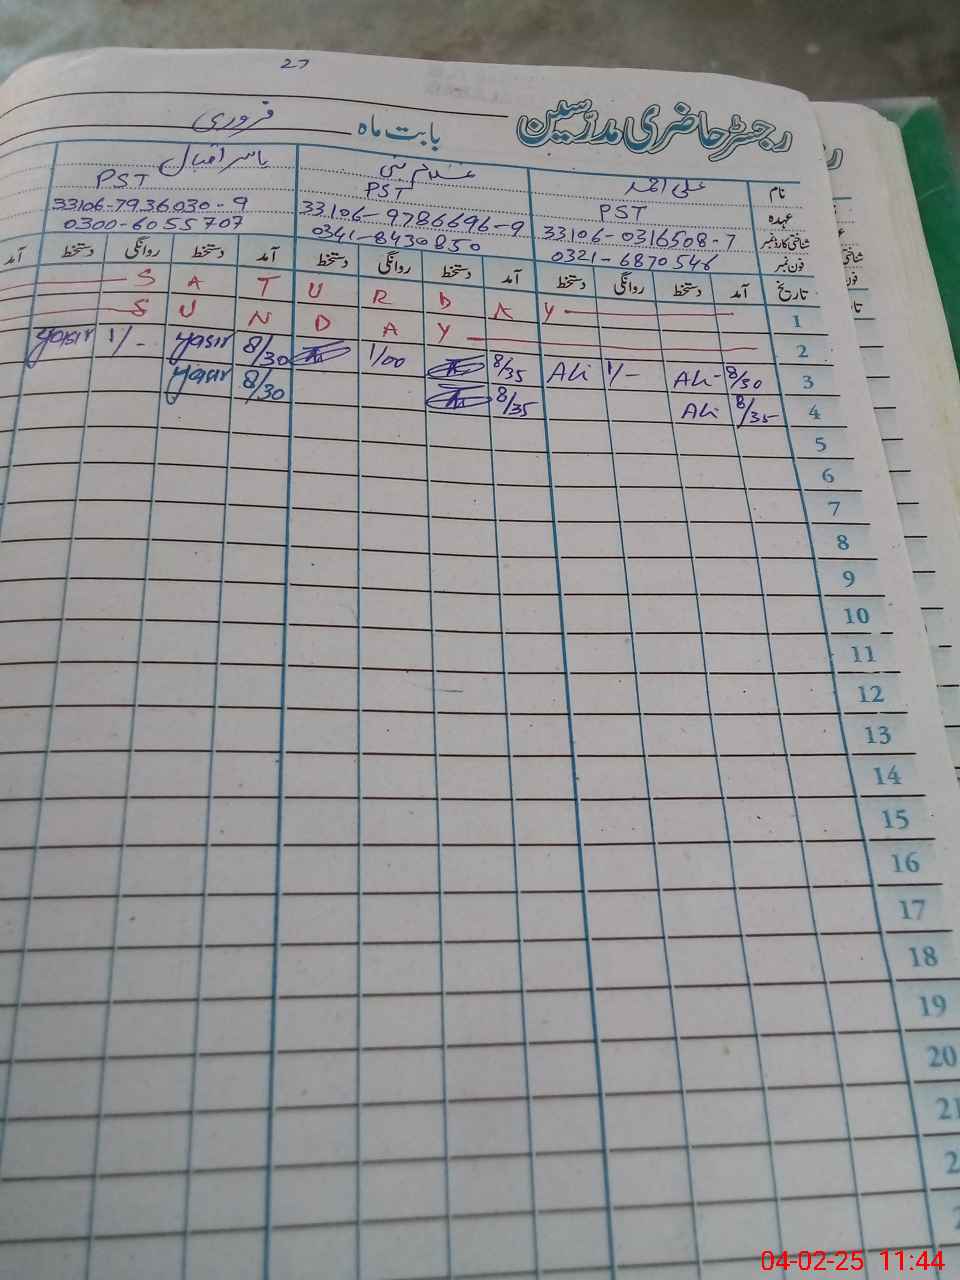 27
رجسٹر حاضری مدرسین بابت ماہ فروری
نام علی احمد یاسر اقبال
عہدہ PST PST PST
شناختی کارڈ نمبر 33106-0316508-7 33106-9786696-9 33106-7936030-9
فون نمبر 0321-6870546 0341-8430850 0300-6055707
تاریخ آمد دستخط روانگی دستخط آمد دستخط روانگی دستخط آمد دستخط روانگی دستخط آمد
1 S A T U R D A Y
2 S U N D A Y
3 8/30 Ali 1/- Ali 8/35 1/00 8/30 yasir 1/- yasir
4 8/35 Ali 8/35 8/30 yasir
5
6
7
8
9
10
11
12
13
14
15
16
17
18
19
20
21
04-02-25 11:44